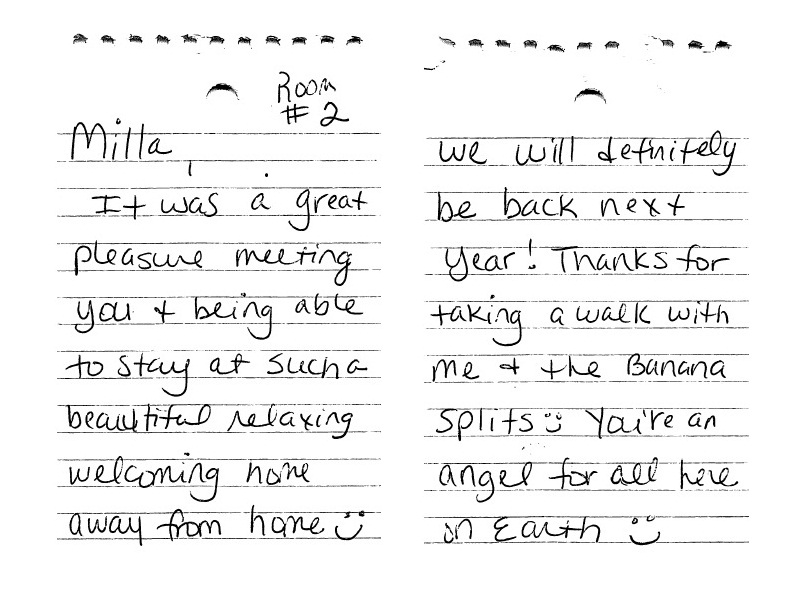 Room
# 2
Milla,
It was a great
pleasure meeting
you + being able
to stay at such a
beautiful relaxing
welcoming home
away from home :)
we will definitely
be back next
year! Thanks for
taking a walk with
me + the Banana
Splits :) You're an
angel for all here
on Earth :)